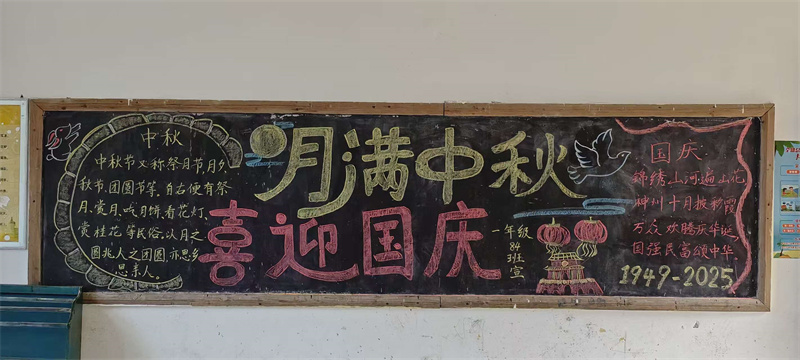 中秋
中秋节又称祭月节、月夕、
秋节、团圆节等，自古便有祭
月、赏月、吃月饼、看花灯、
赏桂花等民俗，以月之
圆兆人之团圆，亦思乡
思亲人。
月满中秋
喜迎国庆
一年级
84
班
宣
国庆：
锦绣山河遍山花
神州十月披彩霞
万众欢腾庆华诞
国强民富颂中华
1949-2025